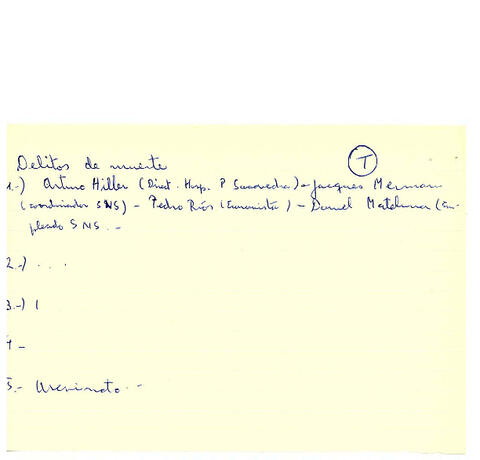 Delitos de muerte
T
1.-) Arturo Hiller (Direct. Hosp. P Saavedra) - Jacques Merman
(coordinador SNS) - Pedro Ríos (Economista) - Daniel Maturana (em-
pleado SNS. -
2.-) . . .
3.-) 1
4 -
5.- Asesinato. -